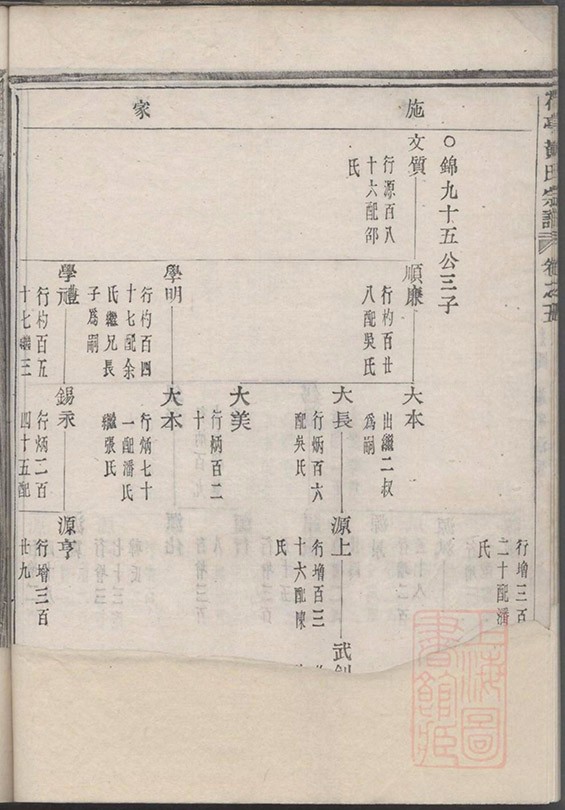 氏宗譜
卷之五
施家
行增三百
二十配潘
氏
○錦九十五公三子
文質
行源百八
十六配邵
氏
順廉
行杓百廿
八配吳氏
大本
出繼二叔
爲嗣
大長
行炳百六
配吳氏
源上
行增百三
十六配陳
氏
武
大美
行炳百二
十
學明
行杓百四
十七配余
氏繼兄長
子爲嗣
大本
行炳七十
一配潘氏
繼張氏
學禮
行杓百五
十七
錫永
行炳二百
四十五配
源亨
行增三百
廿九
上海圖
書館藏